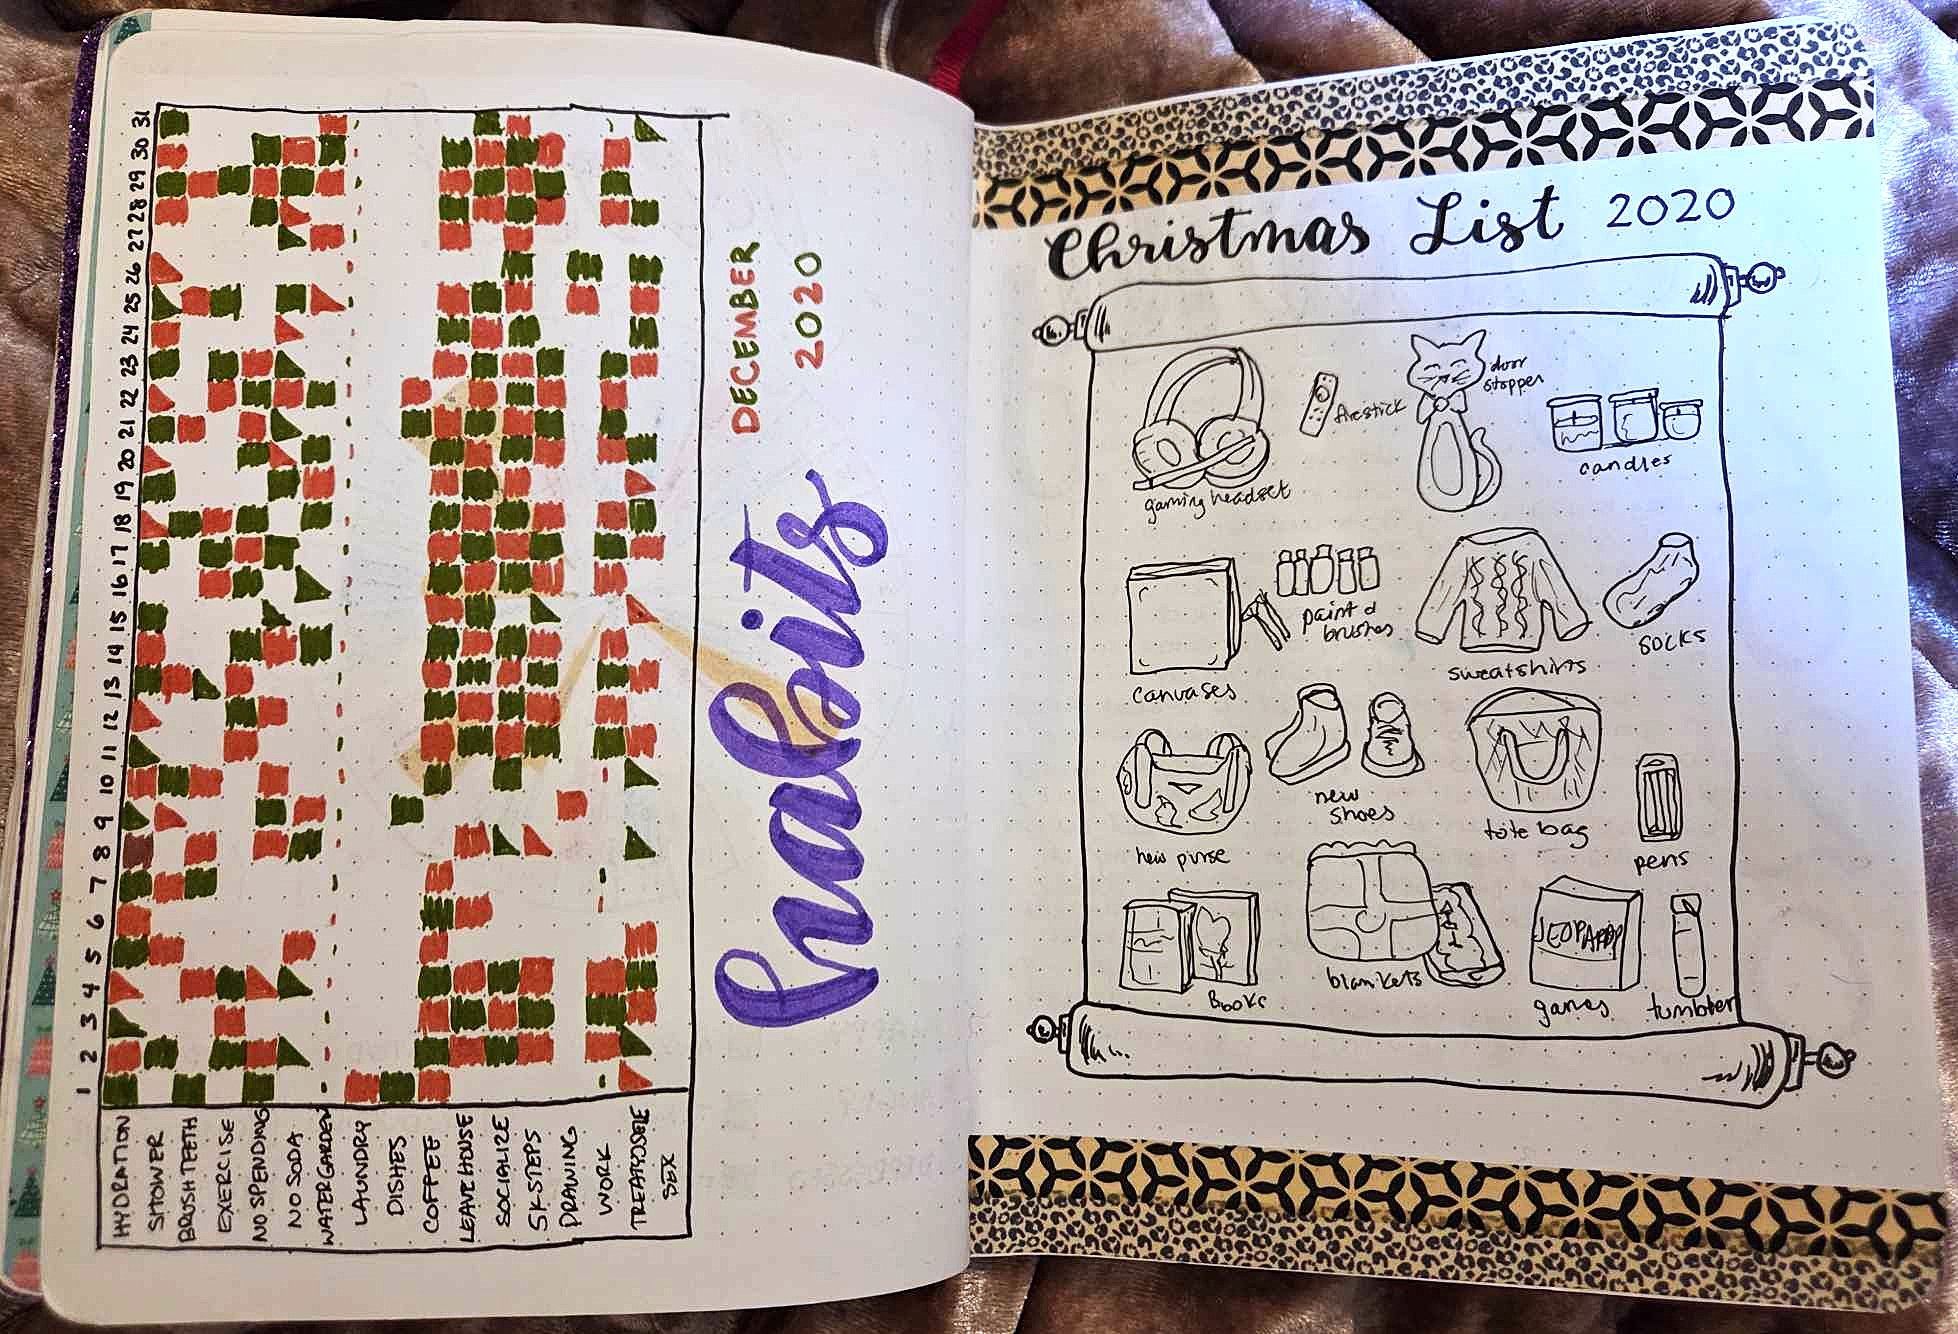 habits
DECEMBER
2020
1 2 3 4 5 6 7 8 9 10 11 12 13 14 15 16 17 18 19 20 21 22 23 24 25 26 27 28 29 30 31
HYDRATION
SHOWER
BRUSH TEETH
EXERCISE
NO SPENDING
NO SODA
WATER GARDEN
LAUNDRY
DISHES
COFFEE
LEAVE HOUSE
SOCIALIZE
5K STEPS
DRAWING
WORK
TREAT YOSELF
SEX
Christmas List 2020
gaming headset
firestick
door
stopper
candles
canvases
paint &
brushes
sweatshirts
socks
new purse
new
shoes
tote bag
pens
Books
blankets
JEOPARDY
games
tumbler